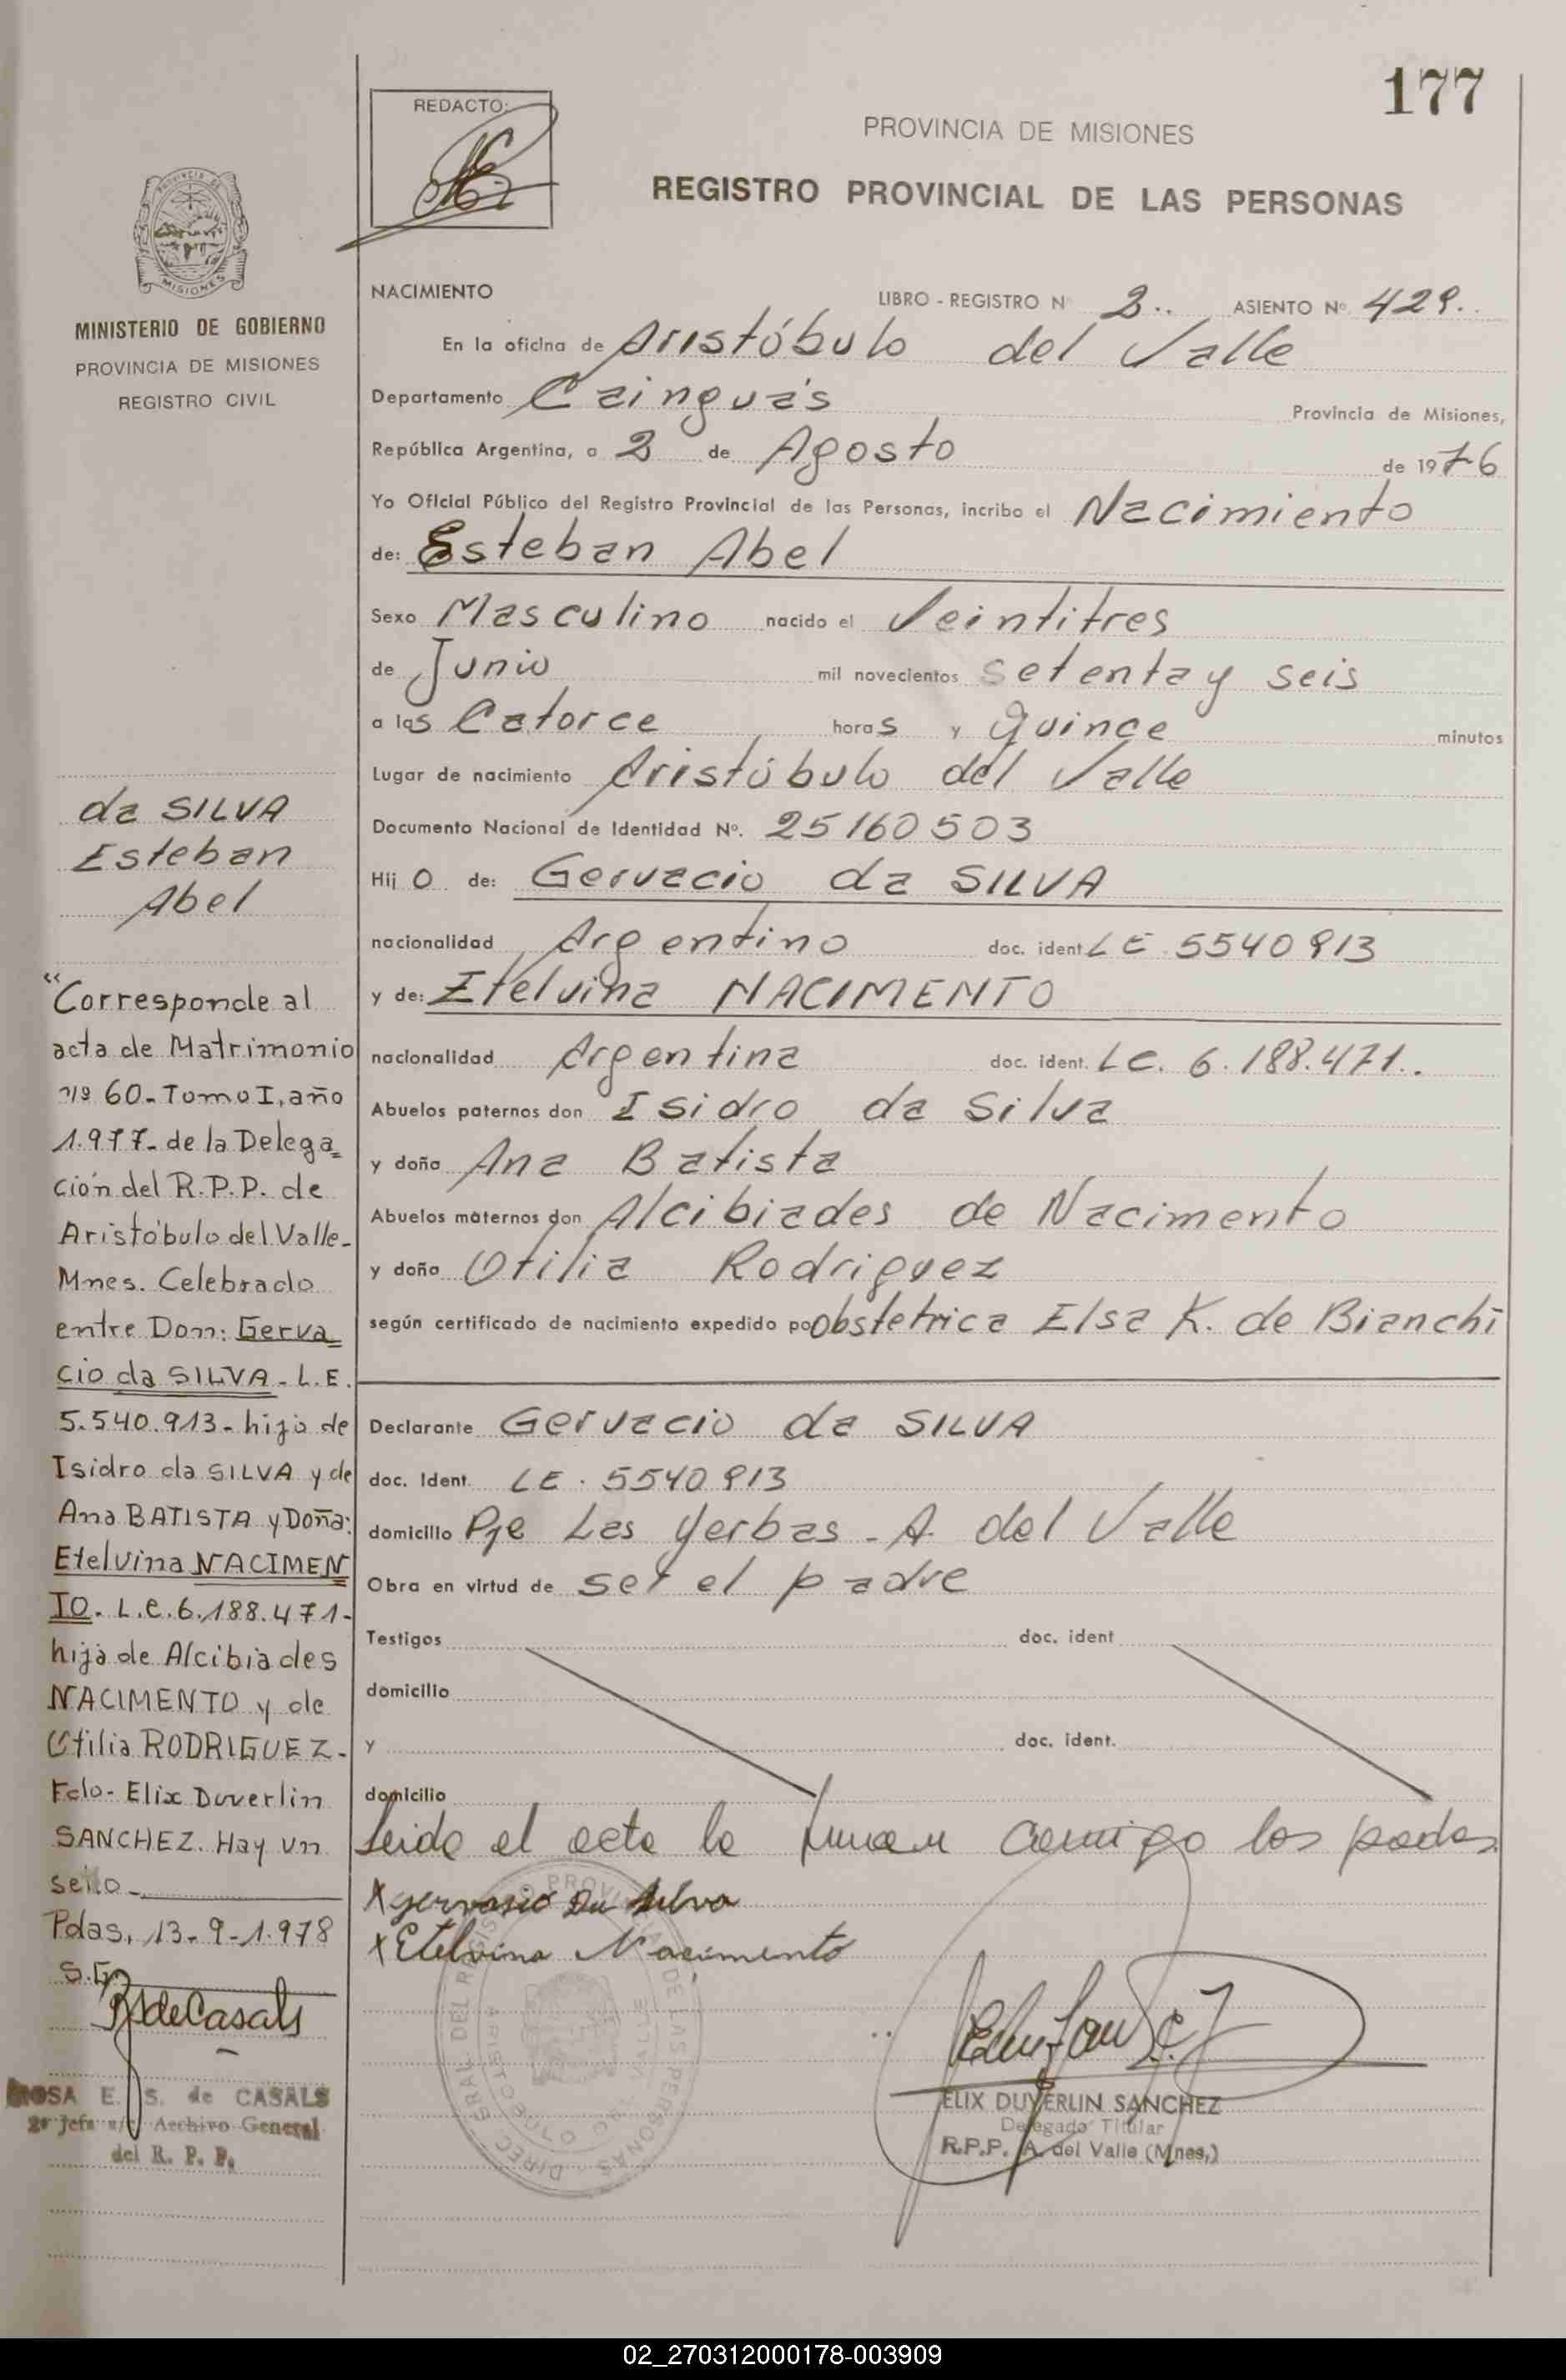 177
REDACTO:
PROVINCIA DE MISIONES
REGISTRO PROVINCIAL DE LAS PERSONAS
PROVINCIA DE
MISIONES
MINISTERIO DE GOBIERNO
PROVINCIA DE MISIONES
REGISTRO CIVIL
NACIMIENTO
LIBRO - REGISTRO Nº 2.. ASIENTO Nº 429..
En la oficina de Aristóbulo del Valle
Departamento Cainguás Provincia de Misiones,
República Argentina, a 2 de Agosto de 1976
Yo Oficial Público del Registro Provincial de las Personas, incribo el Nacimiento
de: Esteban Abel
Sexo Masculino nacido el Veintitres
de Junio mil novecientos setenta y seis
a las Catorce horas y quince minutos
Lugar de nacimiento Aristóbulo del Valle
Documento Nacional de Identidad Nº. 25160503
Hijo de: Gervacio da SILVA
nacionalidad Argentino doc. ident LE 5540913
y de: Etelvina NACIMENTO
nacionalidad Argentina doc. ident. LC. 6.188.471..
Abuelos paternos don Isidro da Silva
y doña Ana Batista
Abuelos maternos don Alcibiades de Nacimento
y doña Otilia Rodriguez
según certificado de nacimiento expedido po Obstetrica Elsa K. de Bianchi
Declarante Gervacio da SILVA
doc. Ident. LE. 5540913
domicilio Pje Las Yerbas - A. del Valle
Obra en virtud de ser el padre
Testigos doc. ident
domicilio
y doc. ident.
domicilio
Leida el acta la firman conmigo los padres
X gervasio Da silva
X Etelvina Nacimento
ELIX DUVERLIN SANCHEZ
Delegado Titular
R.P.P. A. del Valle (Mnes,)
da SILVA
Esteban
Abel
"Corresponde al
acta de Matrimonio
nº 60. Tomo I, año
1.977- de la Delega=
ción del R.P.P. de
Aristóbulo del Valle-
Mnes. Celebrado
entre Don: Gerva
cio da SILVA - L.E.
5.540.913- hijo de
Isidro da SILVA y de
Ana BATISTA y Doña:
Etelvina NACIMEN
TO. L.C. 6.188.471-
hija de Alcibiades
NACIMENTO y de
Otilia RODRIGUEZ-
Fdo- Elix Duverlin
SANCHEZ. Hay un
sello-
Pdas, 13-9-1.978
S.G.
RSdeCasals
ROSA E. S. de CASALS
2ª Jefa a/c Archivo General
del R. P. P.
02_270312000178-003909